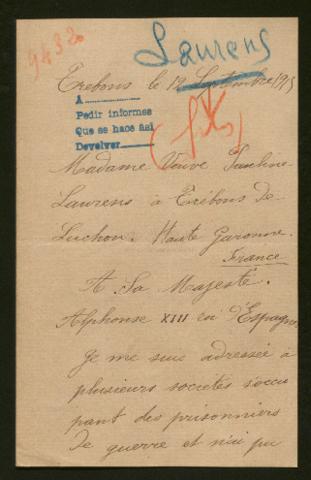 9432
Laurens
Trebons le 12 Septembre 1915
A
Pedir informes
Que se haos asi
Devolver
(fils)
Madame Veuve
Laurens à Trébons de
Luchon. Haute Garonne.
France
A Sa Majesté.
Alphonse XIII en d'Espagne
Je me suis adressée à
plusieurs societés s'occu
pant des prisonniers
de guerre et n'ai pu